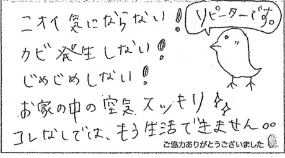 ニオイ気にならない!
リピーターです。
カビ発生しない!
じめじめしない!
お家の中の空気スッキリ
コレなしでは、もう生活で生ません。。
ご協力ありがとうございました